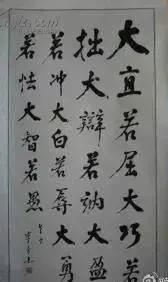 大直若屈大巧若
拙大辯若訥大盈
若冲大白若辱大勇
若怯大智若愚